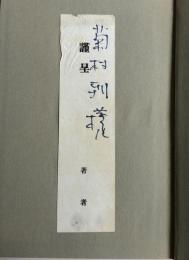 菊村到様
謹呈
著者